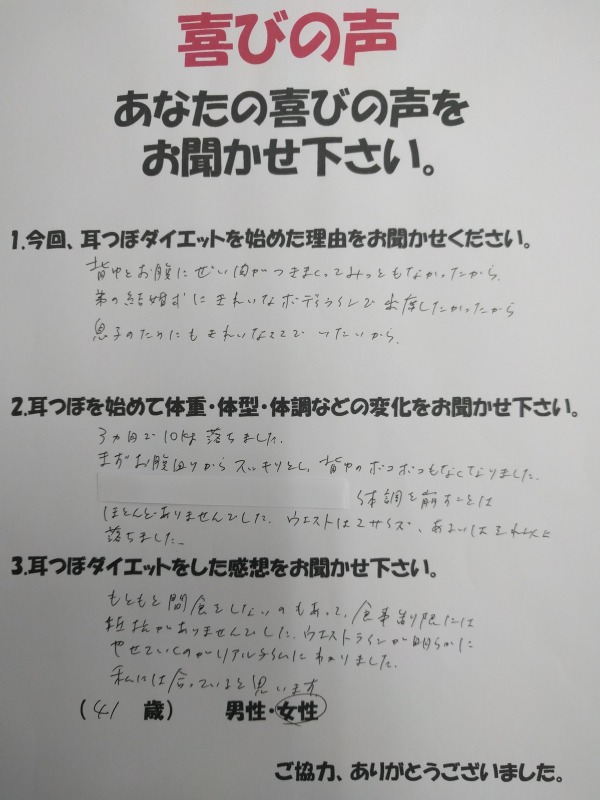 喜びの声
あなたの喜びの声を
お聞かせ下さい。
1.今回、耳つぼダイエットを始めた理由をお聞かせください。
背中とお腹にぜい肉がつきまくってみっともなかったから。
弟の結婚式にきれいなボディラインで出席したかったから
息子のためにもきれいなママでいたいから。
2.耳つぼを始めて体重・体型・体調などの変化をお聞かせ下さい。
3ヵ月で10kg落ちました。
まずお腹回りからスッキリとし、背中のボコボコもなくなりました。
体調を崩すことは
ほとんどありませんでした。ウエストは2サイズ、あるいはそれ以上
落ちました。
3.耳つぼダイエットをした感想をお聞かせ下さい。
もともと間食をしないのもあって、食事制限には
抵抗がありませんでした。ウエストラインが明らかに
やせていくのがリアルタイムにわかりました。
私には合っていると思います
(41 歳) 男性・女性
ご協力、ありがとうございました。